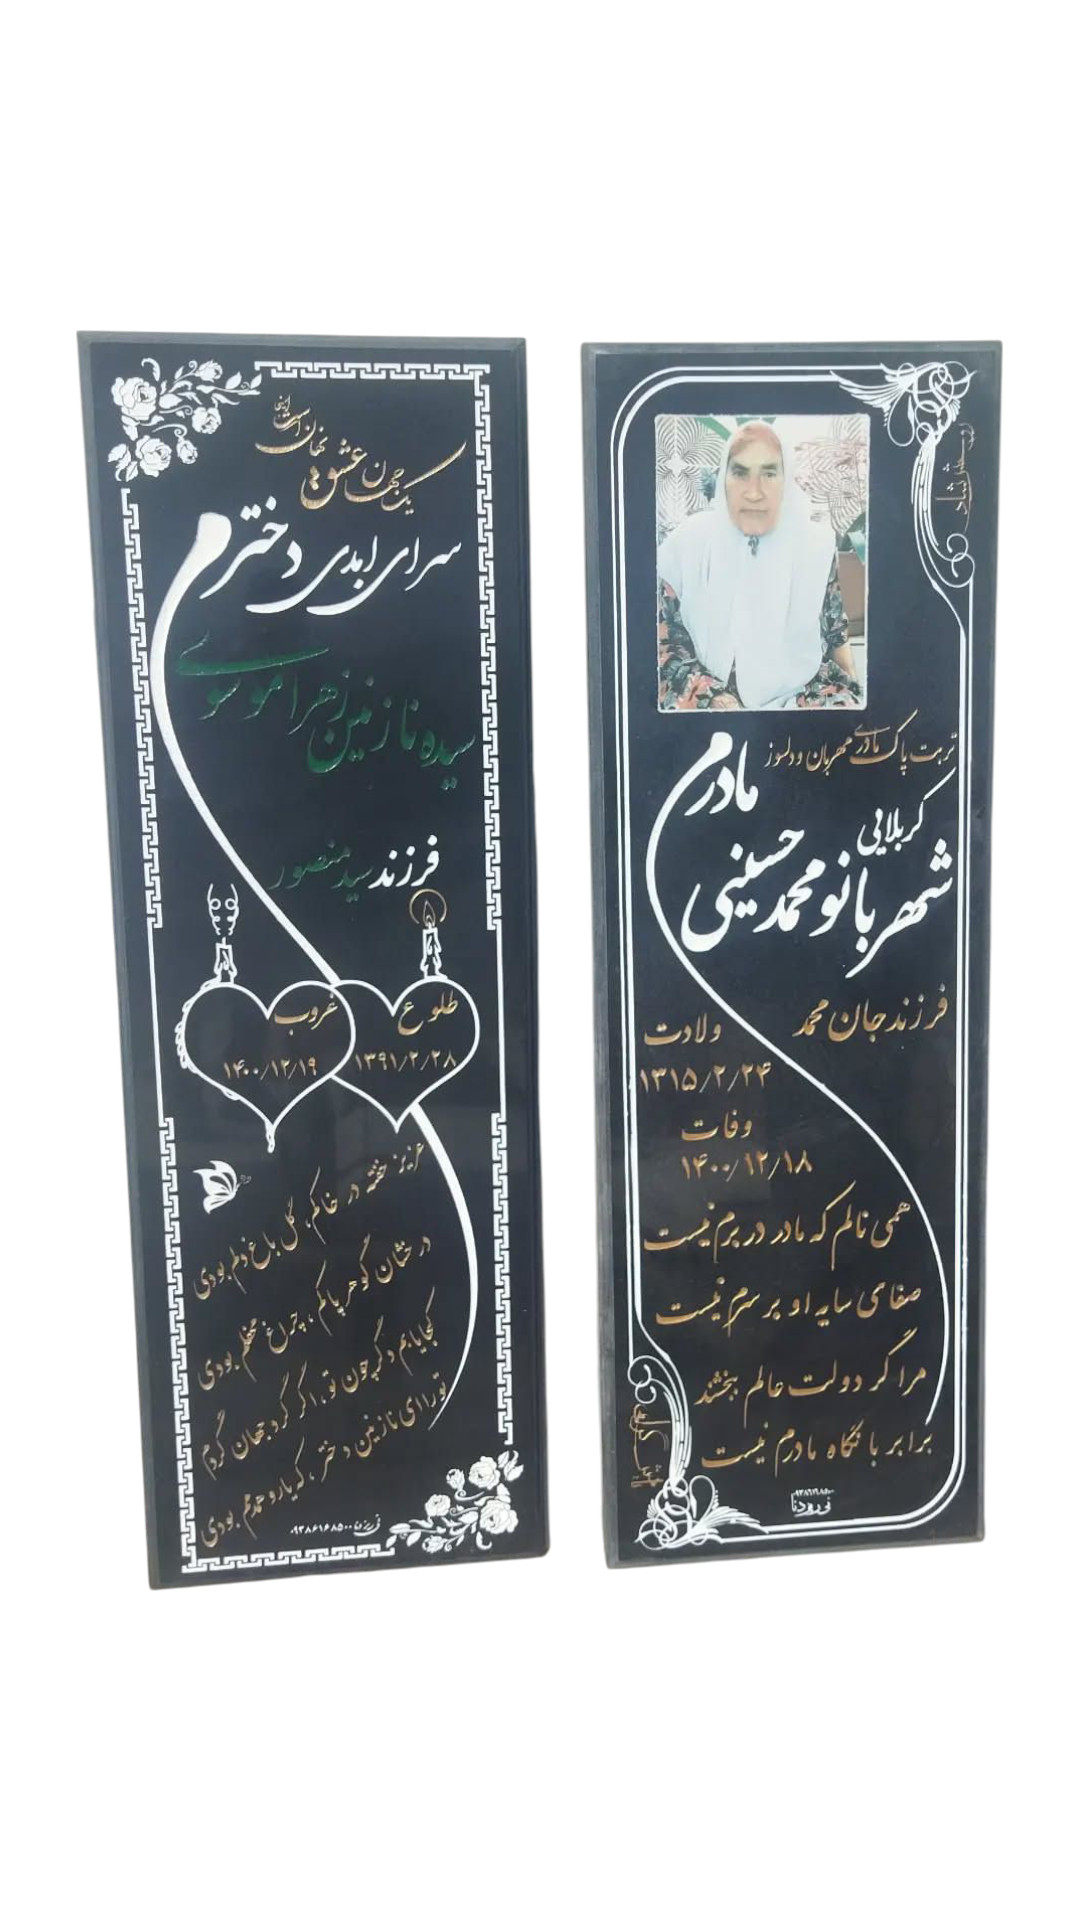 یک جهان عشق نهان است اینجا
سرای ابدی دخترم
سیده نازنین زهرا موسوی
فرزند سید منصور
طلوع
۱۳۹۱/۲/۲۸
غروب
۱۴۰۰/۱۲/۱۹
عزیز خفته در خاکم، گل باغ دلم بودی
درخشان گوهر پاکم، چراغ محفلم بودی
کجا یابم دگر چون تو، اگر گرد جهان گردم
تو را ای نازنین دختر، که یار و همدمم بودی
۰۹۳۸۶۱۶۸۵۰۰
تربت پاک مادری مهربان و دلسوز
مادرم
کربلایی
شهربانو محمدحسینی
فرزند جان محمد
ولادت
۱۳۱۵/۲/۲۴
وفات
۱۴۰۰/۱۲/۱۸
همی نالم که مادر در برم نیست
صفای سایه او بر سرم نیست
مرا گر دولت عالم ببخشند
برابر با نگاه مادرم نیست
۰۹۳۸۶۱۶۸۵۰۰